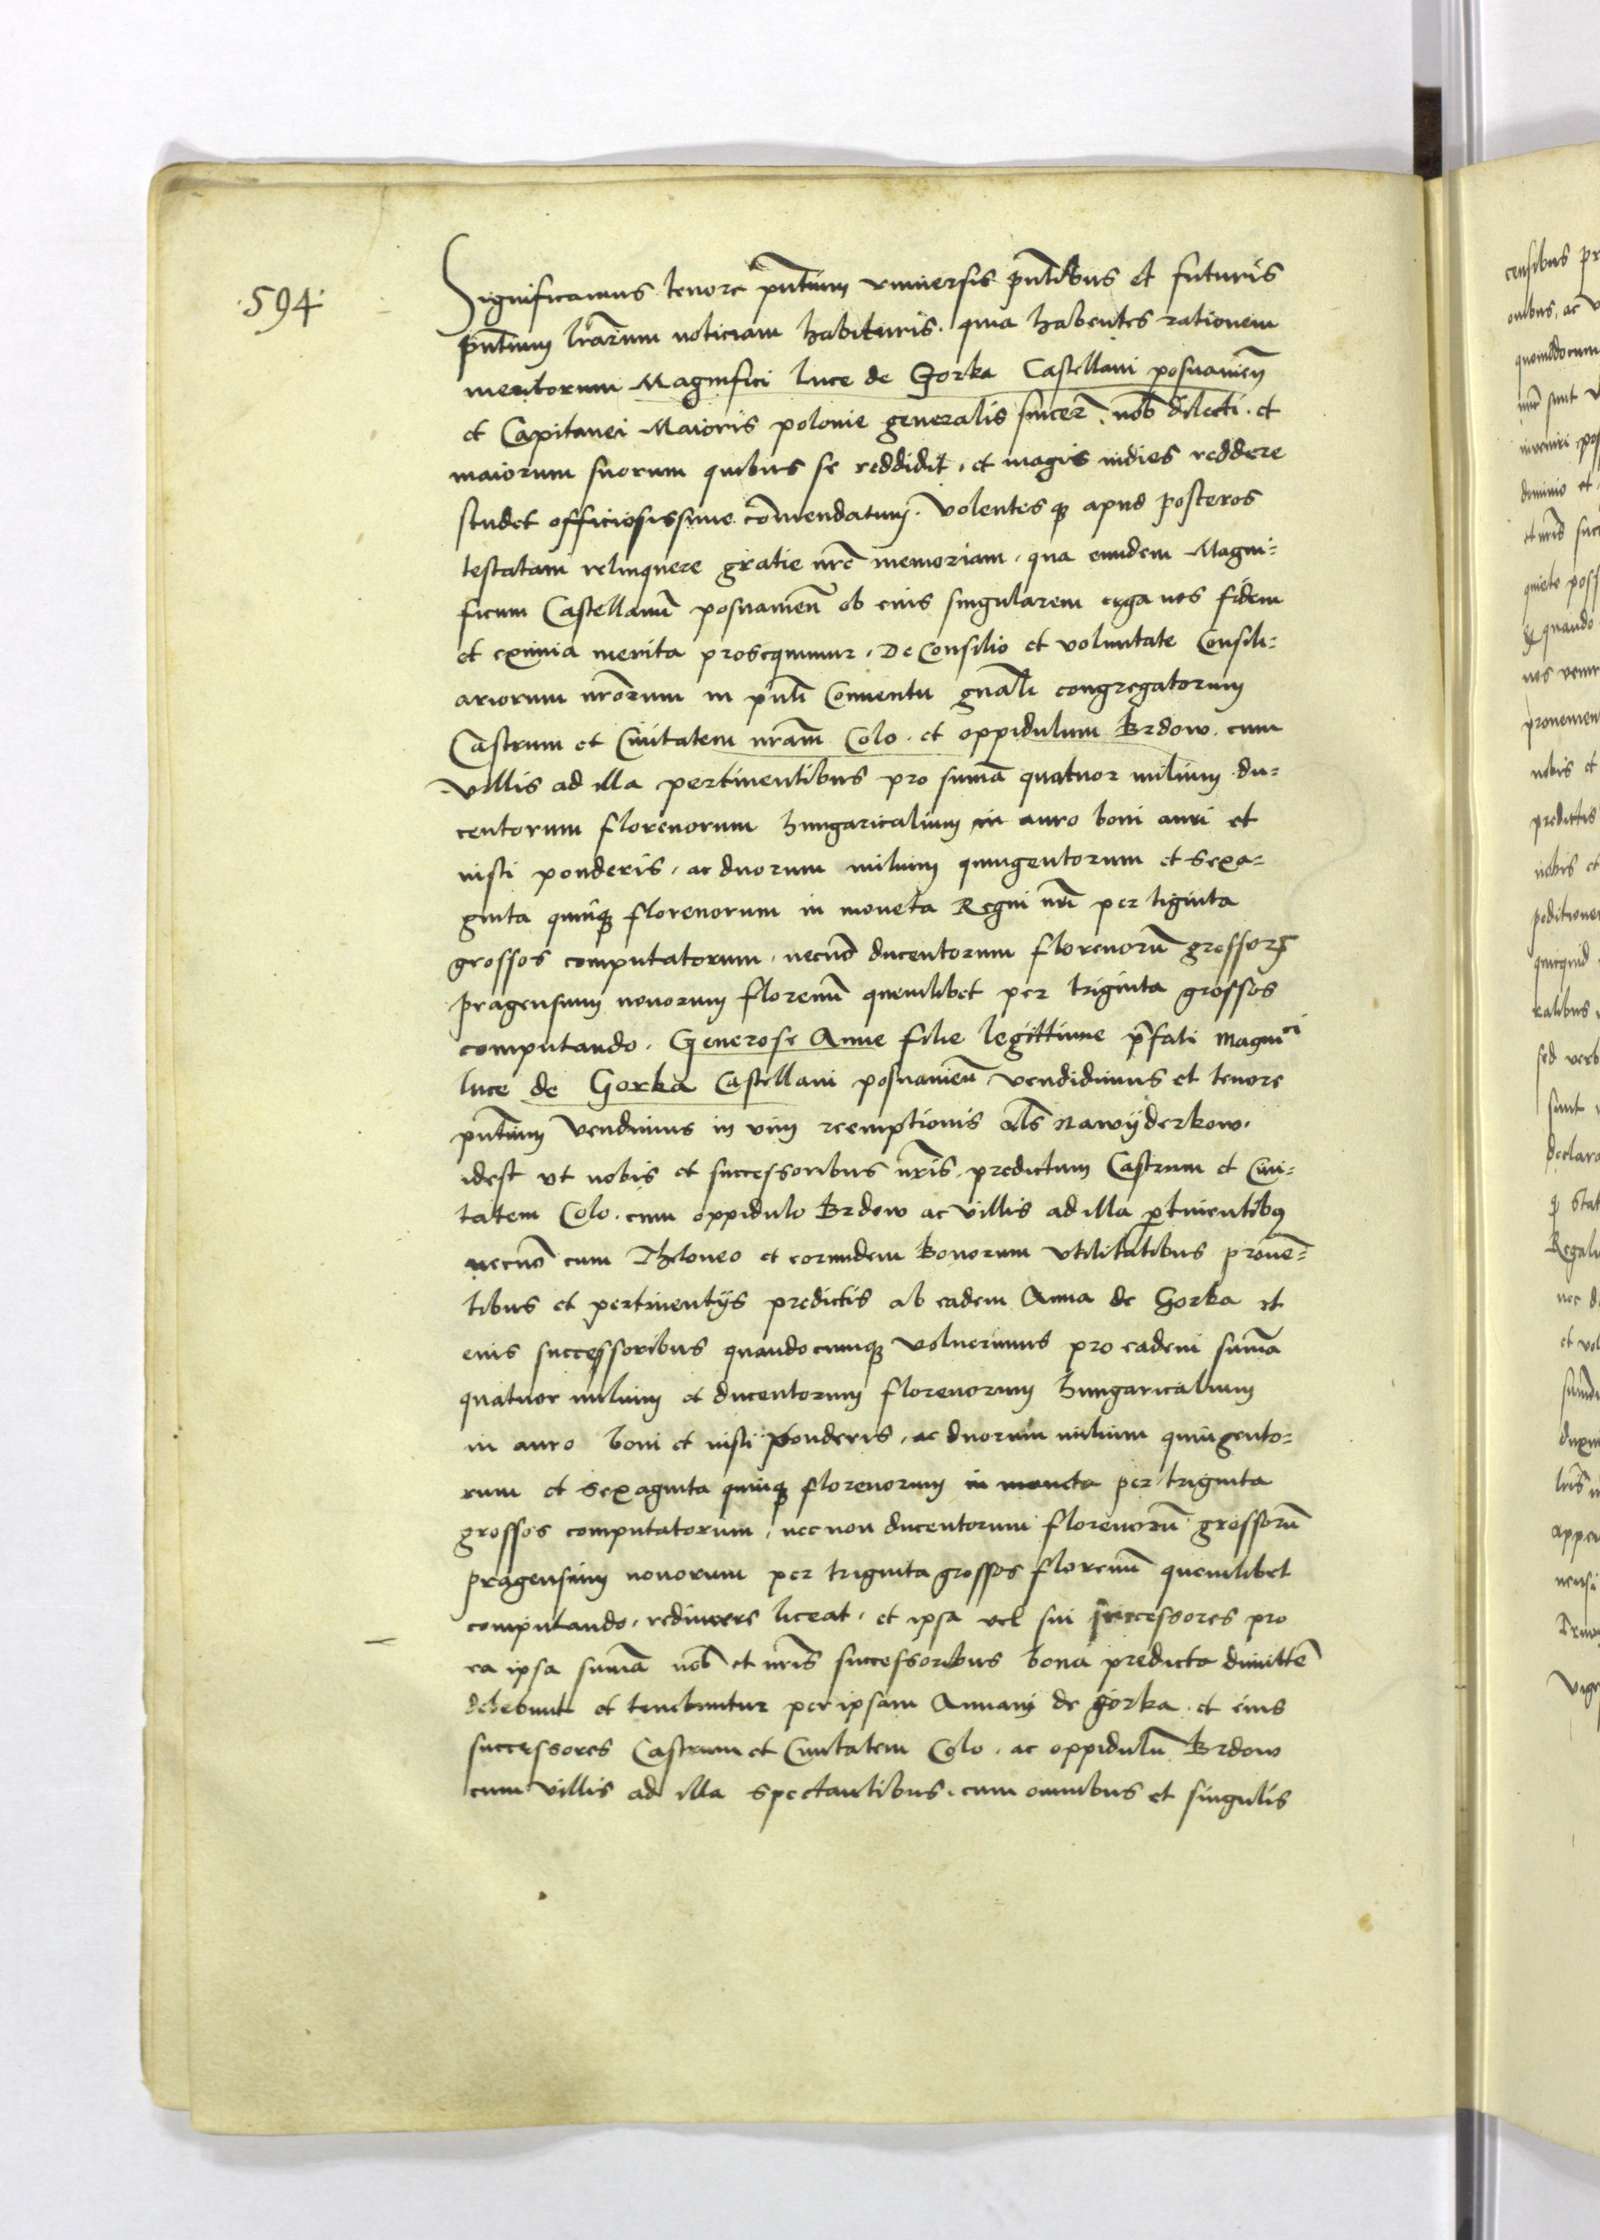 ·594·
Significamus tenore pñtium vniversis pñtibus et futuris
pñtium lrarum noticiam habituris. quia habentes rationem
meritorum Magnifici luce de Gorka Castellani posnanieñ
et Capitanei Maioris polonie generalis sincer. nob dilecti. et
maiorum suorum quibus se reddidit, et magis indies reddere
studet officiosissime comendatum. Volentes q3 apud posteros
testatam relinquere gratie nre memoriam, qua eundem Magni=
ficum Castellanũ posnanieñ ob eius singularem erga nos fidem
et eximia merita prosequimur. De Consilio et voluntate Consili=
ariorum nrorum in pñti Conuentu gñali congregatorum
Castrum et Ciuitatem nram Colo. et oppidulum Brdow. cum
villis ad illa pertinentibus pro suma quatuor milium du=
centorum florenorum hungaricalium in auro boni auri et
iusti ponderis, ac duorum milium quingentorum et sexa=
ginta quinq3 florenorum in moneta Regni nri per tiginta
grossos computatorum, necnõ ducentorum florenorũ grossorꝝ
pragensium nouorum florenũ quemlibet per triginta grossos
computando. Generose Anne filie legittime p̃fati Magnici
luce de Gorka Castellani posnanieñ vendidimus et tenore
pñtium Vendimus in vim reemptionis als nawÿderkow.
idest vt nobis et successoribus nris, predictum Castrum et Ciui=
tatem Colo. cum oppidulo Brdow ac Villis ad illa ptinentibꝰ
necnõ cum Theloneo et eorundem bonorum vtilitatibus prouẽ=
tibus et pertinentijs predictis ab eadem Anna de Gorka et
eius successoribus quandocunq3 voluerimus pro eadem suma
quatuor milium et ducentorum florenorum hungaricalium
in auro boni et iusti ponderis, ac duorum milium quingento=
rum et sexaginta quinq3 florenorum in moneta per triginta
grossos computatorum, nec non ducentorum florenorũ grossorũ
pragensium nouorum per triginta grossos florenũ quemlibet
computando, redimere liceat, et ipsa vel sui successores pro
ea ipsa suma nob et nris successoribus bona predicta dimittẽ
debebunt et tenebuntur per ipsam Annam de gorka. et eius
successores Castrum et Ciuitatem Colo. ac oppidulũ Brdow
cum villis ad illa spectantibus, cum omnibus et singulis